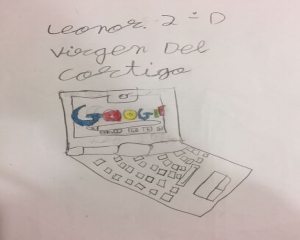 Leonor. 2º D
Virgen Del
Cortigo
GOOGlE